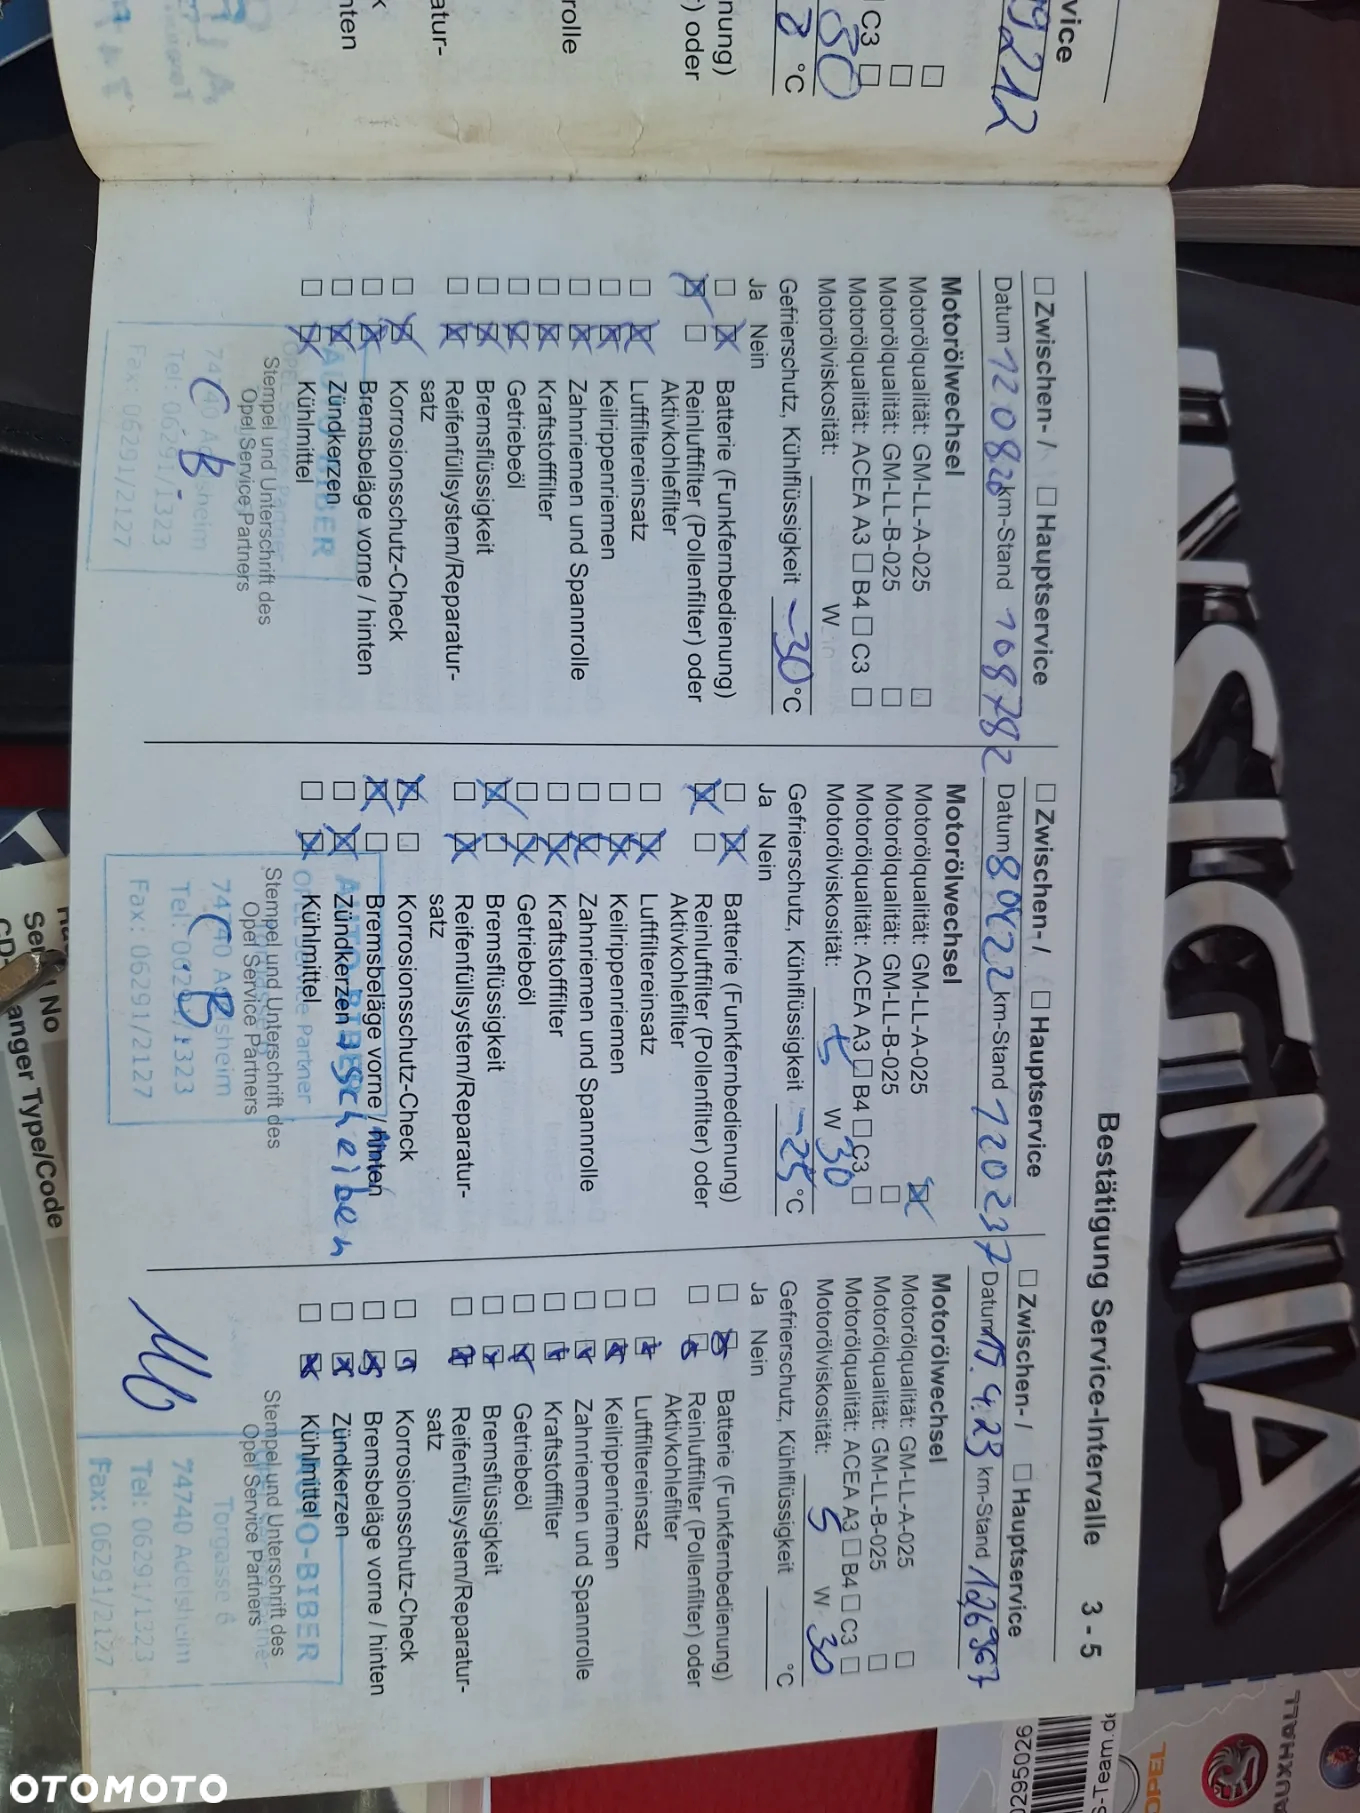 Bestätigung Service-Intervalle 3 - 5
Zwischen- / Hauptservice
Datum 12 08 20 km-Stand 108782
Motorölwechsel
Motorölqualität: GM-LL-A-025
Motorölqualität: GM-LL-B-025
Motorölqualität: ACEA A3 B4 C3
Motorölviskosität: W
Gefrierschutz, Kühlflüssigkeit -30 °C
Ja Nein
Batterie (Funkfernbedienung)
Reinluftfilter (Pollenfilter) oder
Aktivkohlefilter
Luftfiltereinsatz
Keilrippenriemen
Zahnriemen und Spannrolle
Kraftstofffilter
Getriebeöl
Bremsflüssigkeit
Reifenfüllsystem/Reparatur-
satz
Korrosionsschutz-Check
Bremsbeläge vorne / hinten
Zündkerzen
Kühlmittel
Stempel und Unterschrift des
Opel Service Partners
Tel: 06291/1323
Fax: 06291/2127
Zwischen- / Hauptservice
Datum 8.04.22 km-Stand 120237
Motorölwechsel
Motorölqualität: GM-LL-A-025
Motorölqualität: GM-LL-B-025
Motorölqualität: ACEA A3 B4 C3
Motorölviskosität: 5 W 30
Gefrierschutz, Kühlflüssigkeit -25 °C
Ja Nein
Batterie (Funkfernbedienung)
Reinluftfilter (Pollenfilter) oder
Aktivkohlefilter
Luftfiltereinsatz
Keilrippenriemen
Zahnriemen und Spannrolle
Kraftstofffilter
Getriebeöl
Bremsflüssigkeit
Reifenfüllsystem/Reparatur-
satz
Korrosionsschutz-Check
Bremsbeläge vorne / hinten
Zündkerzen Scheiben
Kühlmittel
AUTO-BIBER
Stempel und Unterschrift des
Opel Service Partners
Fax: 06291/2127
Zwischen- / Hauptservice
Datum 15.4.23 km-Stand 126.967
Motorölwechsel
Motorölqualität: GM-LL-A-025
Motorölqualität: GM-LL-B-025
Motorölqualität: ACEA A3 B4 C3
Motorölviskosität: 5 W 30
Gefrierschutz, Kühlflüssigkeit °C
Ja Nein
Batterie (Funkfernbedienung)
Reinluftfilter (Pollenfilter) oder
Aktivkohlefilter
Luftfiltereinsatz
Keilrippenriemen
Zahnriemen und Spannrolle
Kraftstofffilter
Getriebeöl
Bremsflüssigkeit
Reifenfüllsystem/Reparatur-
satz
Korrosionsschutz-Check
Bremsbeläge vorne / hinten
Zündkerzen
Kühlmittel
AUTO-BIBER
Stempel und Unterschrift des
Opel Service Partners
Torgasse 6
74740 Adelsheim
Tel: 06291/1323
Fax: 06291/2127
vice
9212
C3
30
°C
nung)
) oder
rolle
atur-
nten
INSIGNIA
No
anger Type/Code
OPEL
VAUXHALL
OTOMOTO